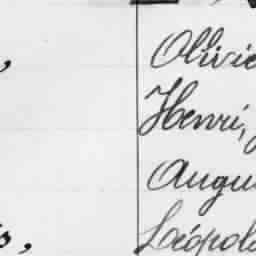 Olivie
Henri,
Augu
Léopold